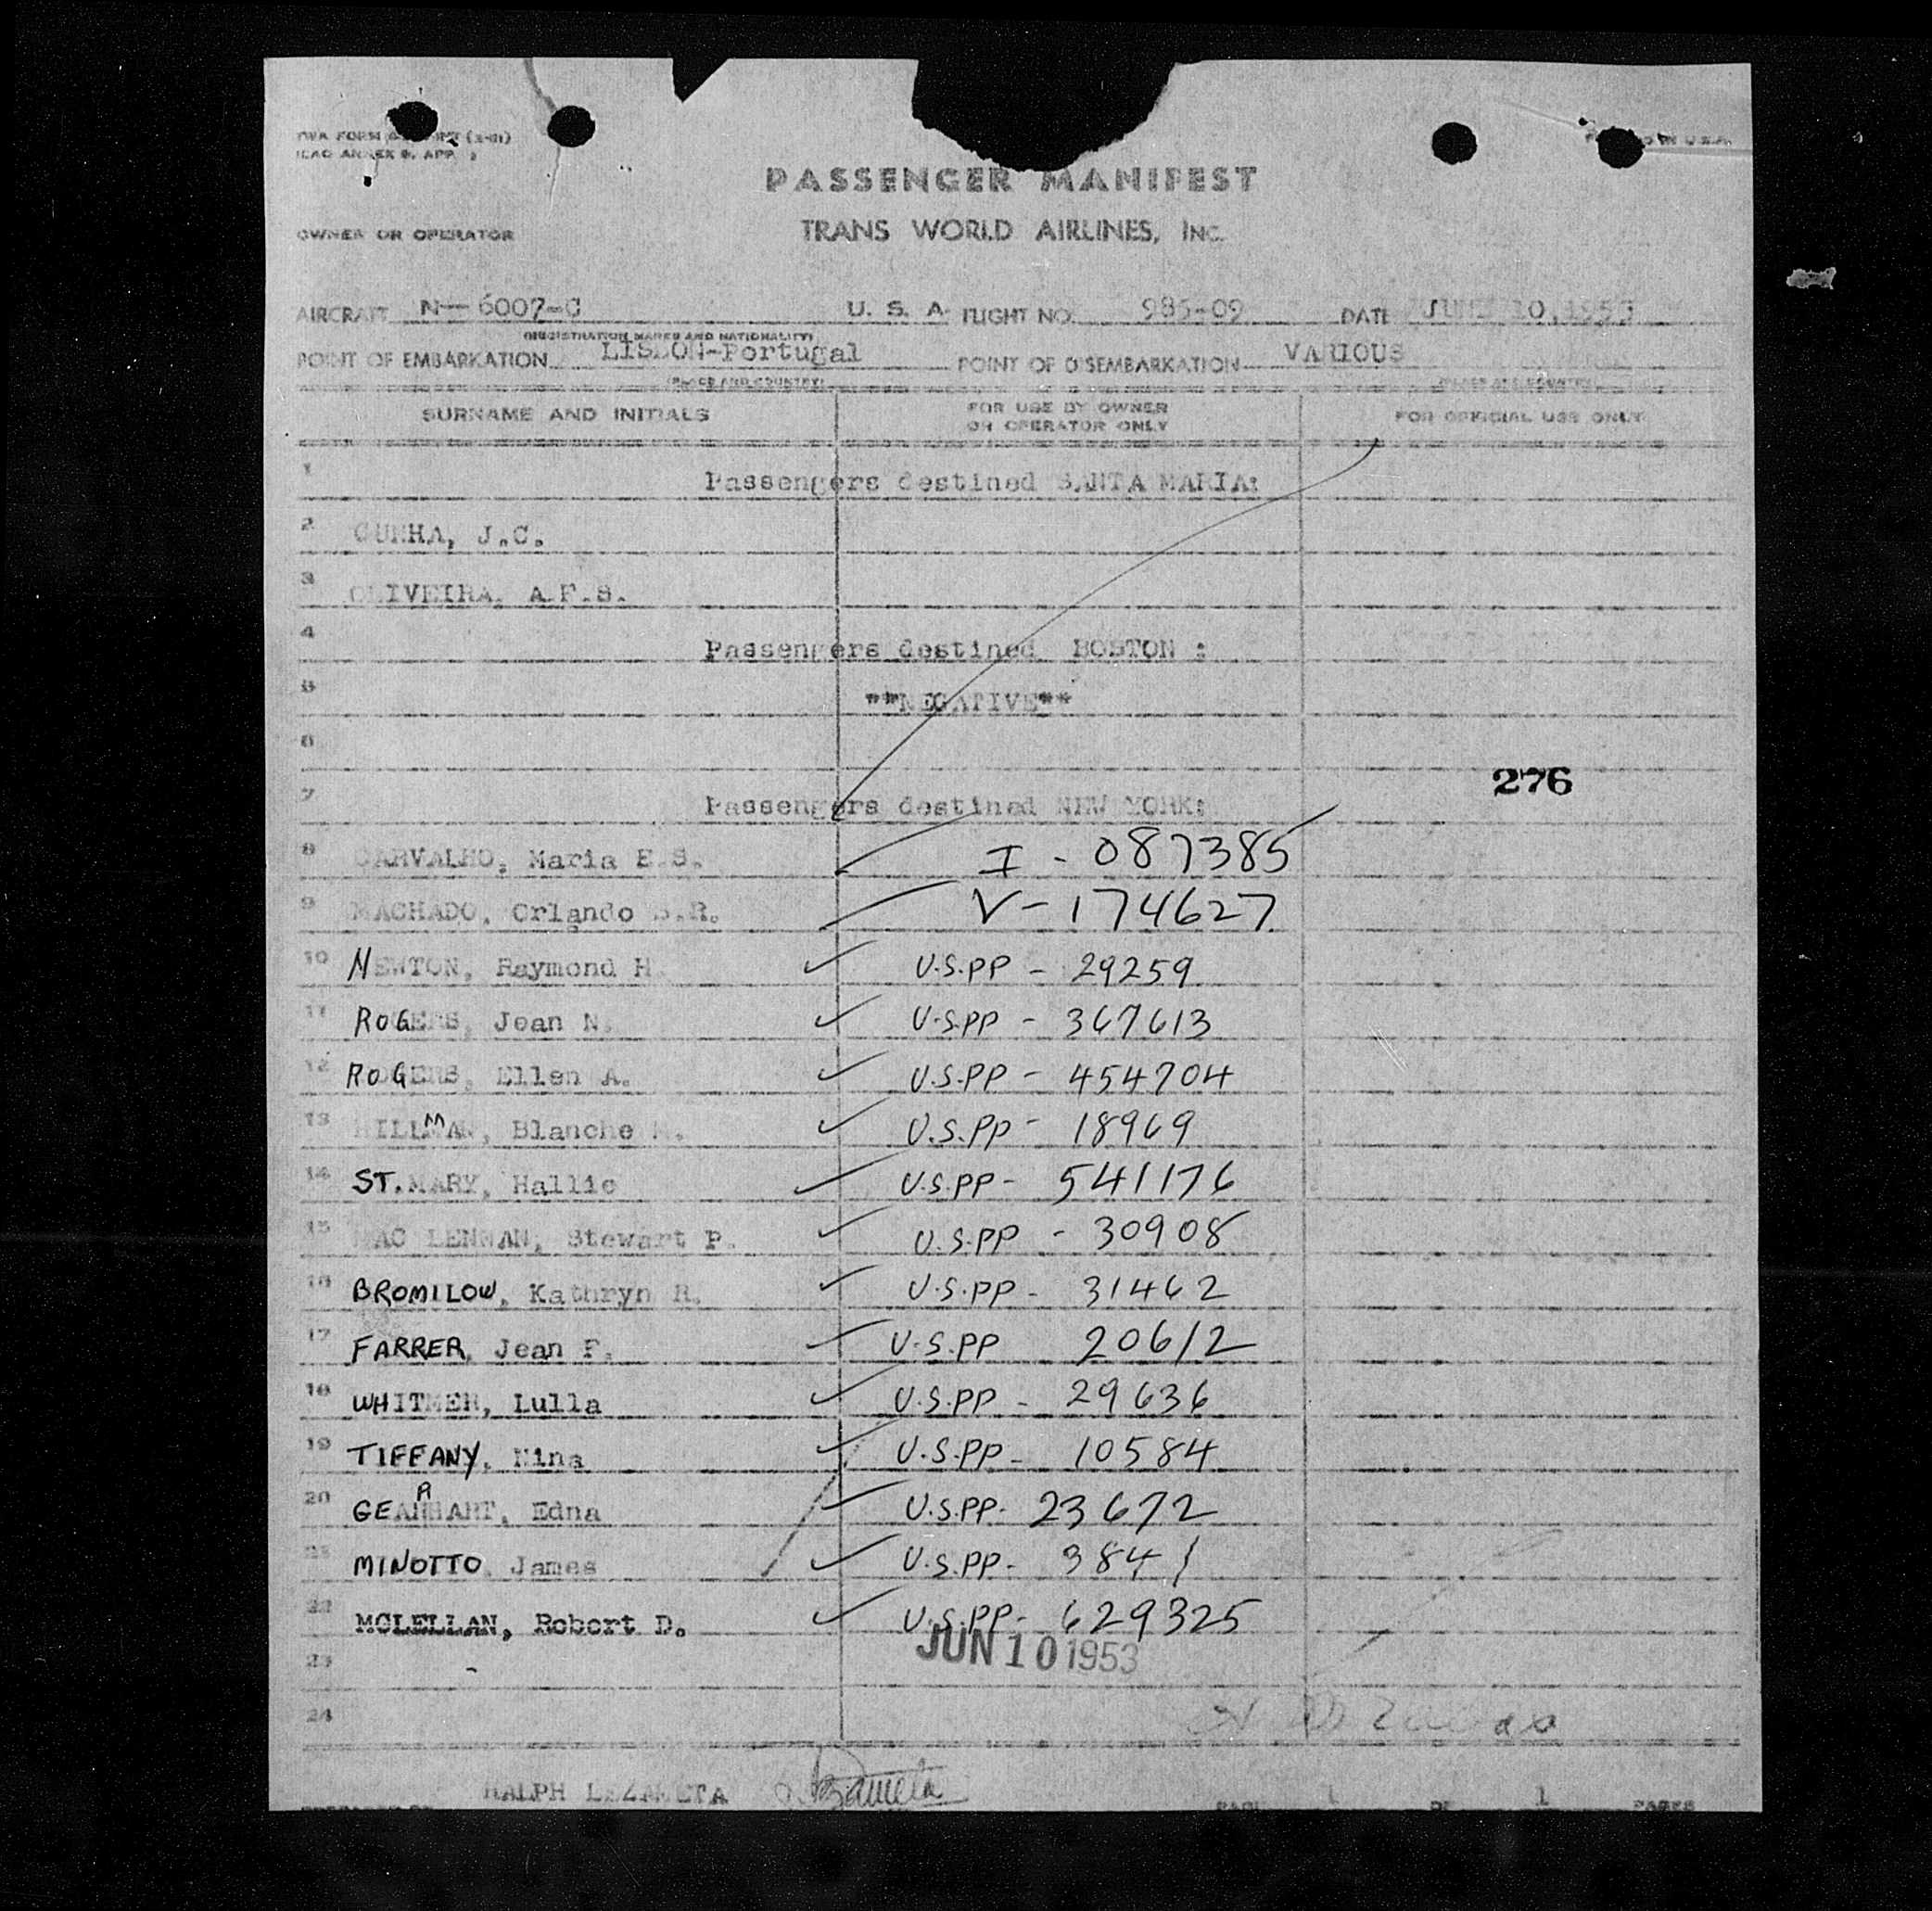 TWA FORM
ICAO ANNEX 9, APP.
IN U.S.A.
PASSENGER MANIFEST
OWNER OR OPERATOR
TRANS WORLD AIRLINES, INC.
AIRCRAFT N- 6007-C U. S. A. FLIGHT NO. 985-09 DATE JUNE 10, 1953
(REGISTRATION MARKS AND NATIONALITY)
POINT OF EMBARKATION LISBON-Portugal POINT OF DISEMBARKATION VARIOUS
(PLACE AND COUNTRY)
SURNAME AND INITIALS FOR USE BY OWNER OR OPERATOR ONLY FOR OFFICIAL USE ONLY
1 Passengers destined SANTA MARIA:
2 CUNHA, J.C.
3 OLIVEIRA, A.F.S.
4 Passengers destined BOSTON :
5 **NEGATIVE**
6
276
7 Passengers destined NEW YORK:
8 CARVALHO, Maria E.S. I - 087385
9 MACHADO, Orlando S.R. V - 174627
10 NEWTON, Raymond H. U.S.PP - 29259
11 ROGERS, Jean N. U.S.PP - 367613
12 ROGERS, Ellen A. U.S.PP - 454704
13 HILLMAN, Blanche U.S.PP - 18969
14 ST.MARY, Hallie U.S.PP - 541176
15 MAC LENNAN, Stewart P. U.S.PP - 30908
16 BROMILOW, Kathryn R. U.S.PP - 31462
17 FARRER, Jean F. U.S.PP 20612
18 WHITMER, Lulla U.S.PP - 29636
19 TIFFANY, Nina U.S.PP - 10584
20 GEARHART, Edna U.S.PP - 23672
21 MINOTTO, James U.S.PP - 3841
22 MCLELLAN, Robert D. U.S.PP - 629325
JUN 10 1953
23
24
RALPH LEZAMETA
PAGE 1 OF 1 PAGES